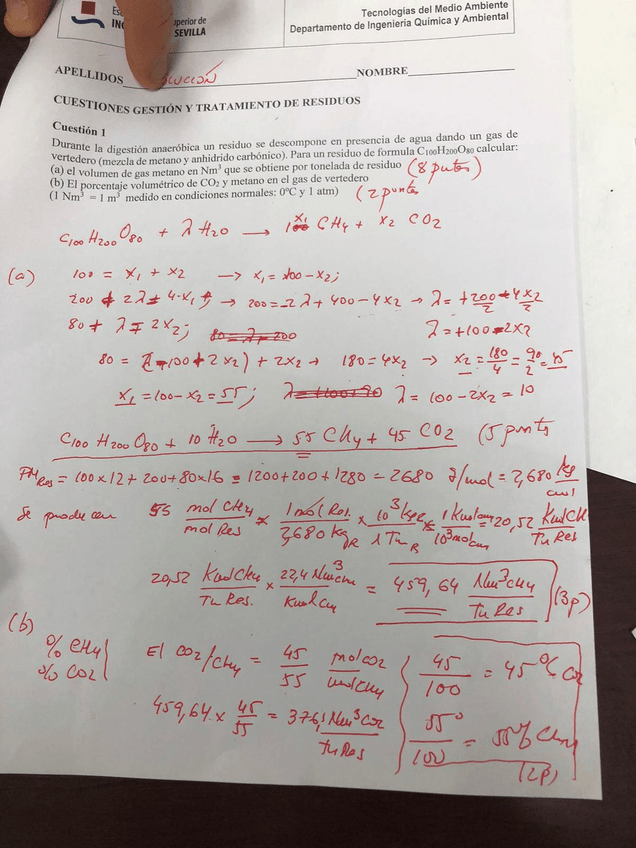 Es
INC
uperior de
SEVILLA
Tecnologías del Medio Ambiente
Departamento de Ingeniería Química y Ambiental
APELLIDOS UCIÓN NOMBRE
CUESTIONES GESTIÓN Y TRATAMIENTO DE RESIDUOS
Cuestión 1
Durante la digestión anaeróbica un residuo se descompone en presencia de agua dando un gas de
vertedero (mezcla de metano y anhidrido carbónico). Para un residuo de formula C100H200O80 calcular:
(a) el volumen de gas metano en Nm³ que se obtiene por tonelada de residuo (8 puntos)
(b) El porcentaje volumétrico de CO2 y metano en el gas de vertedero
(1 Nm³ = 1 m³ medido en condiciones normales: 0ºC y 1 atm) (2 puntos
C100 H200 O80 + λ H2O → x1 CH4 + x2 CO2
(a) 100 = x1 + x2 → x1 = 100 - x2;
200 + 2λ = 4·x1; → 200 = -2λ + 400 - 4x2 → λ = +200 - 4x2 / 2
80 + λ = 2x2; λ = +100 - 2x2
80 = (-100 + 2x2) + 2x2 → 180 = 4x2 → x2 = 180/4 = 90/2 = 45
x1 = 100 - x2 = 55; λ = 100 - 2x2 = 10
C100 H200 O80 + 10 H2O → 55 CH4 + 45 CO2 (5 punts
PM Res = 100x12 + 200 + 80x16 = 1200 + 200 + 1280 = 2680 g/mol = 2,680 kg/mol
Se producen 55 mol CH4/mol Res × 1 mol Res./2,680 kg R × 10³ kg R/1 Tn R × 1 Kmol CH4/10³ mol CH4 = 20,52 Kmol CH4/Tn Res
20,52 Kmol CH4/Tn Res. × 22,4 Nm³ CH4/Kmol CH4 = 459,64 Nm³ CH4/Tn Res (3p)
(b) % CH4
% CO2
El CO2/CH4 = 45/55 mol CO2/mol CH4
459,64 × 45/55 = 376,1 Nm³ CO2/Tn Res
45/100 = 45 % CO2
55/100 = 55% CH4
(2p)